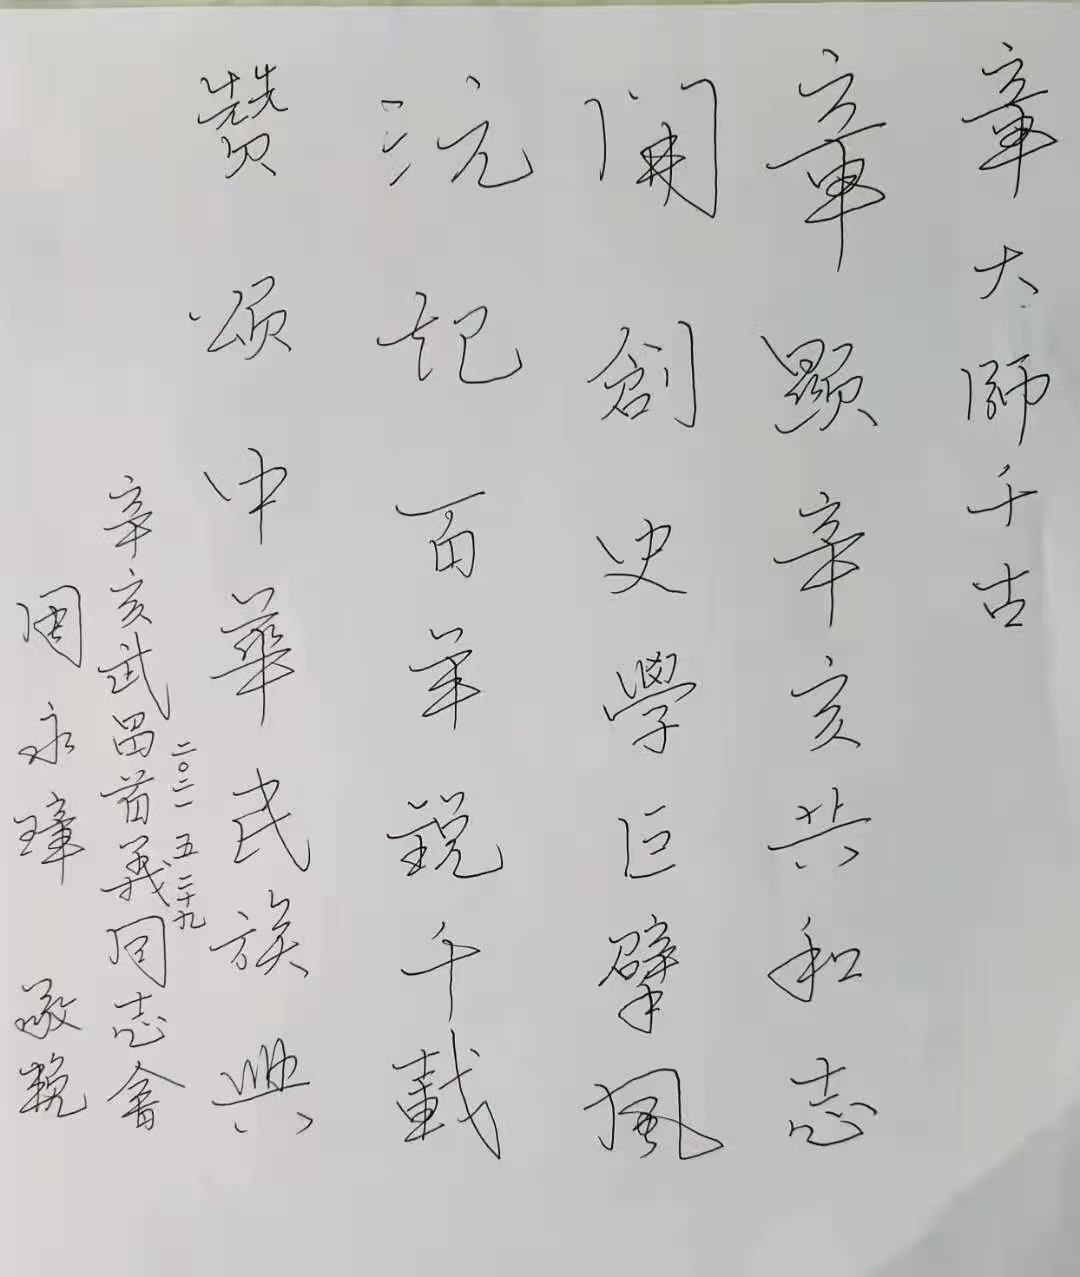 章大師千古
章顯辛亥共和志
開創史學巨擘風
沅記百年説千載
赞頌中華民族興
二〇二一 五 二十九
辛亥武昌首義同志會
周永璋 敬輓